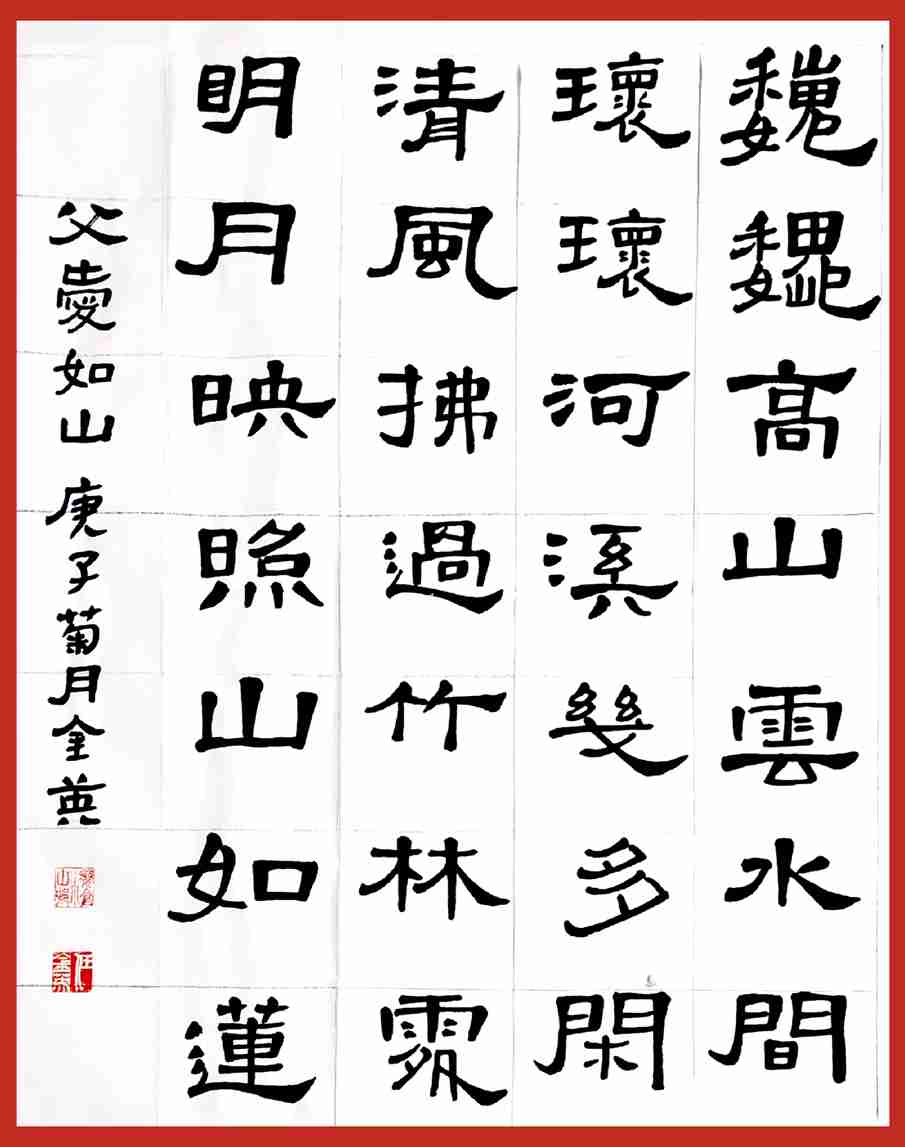 巍巍高山雲水間
瓌瓌河溪幾多閑
清風拂過竹林
明月映照山如蓮
父愛如山 庚子菊月金英